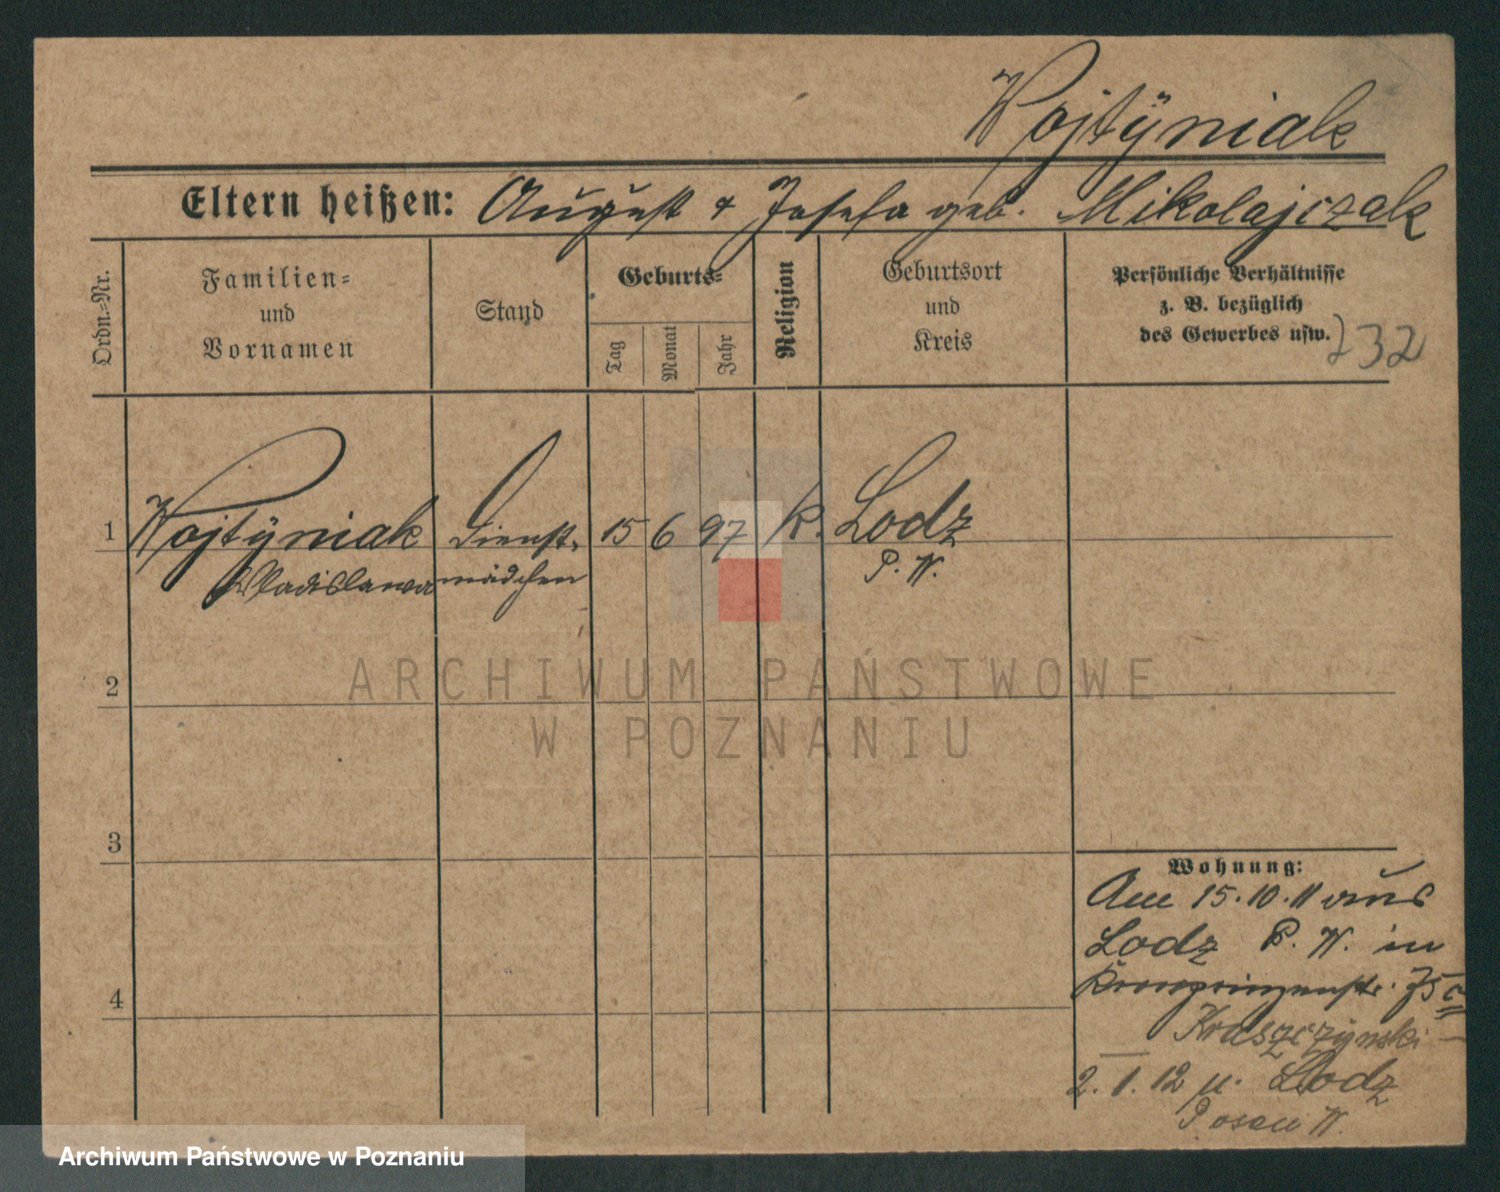 Wojtÿniak
Eltern heißen: August & Josefa geb. Mikolajczak
Ordn.-Nr.
Familien-
und
Vornamen
Stand
Geburts-
Tag
Monat
Jahr
Religion
Geburtsort
und
Kreis
Persönliche Verhältnisse
z. B. bezüglich
des Gewerbes usw.
732
1 Wojtÿniak Dienst- 15 6 97 K. Lodz
Wladislawa mädchen P. W.
2
ARCHIWUM PAŃSTWOWE
W POZNANIU
3
4
Wohnung:
Am 15.10.11 aus
Lodz P. W. in
Kronprinzenstr. 75 a
Kraszczynski
2. 1. 12 n. Lodz
Posen W.
Archiwum Państwowe w Poznaniu